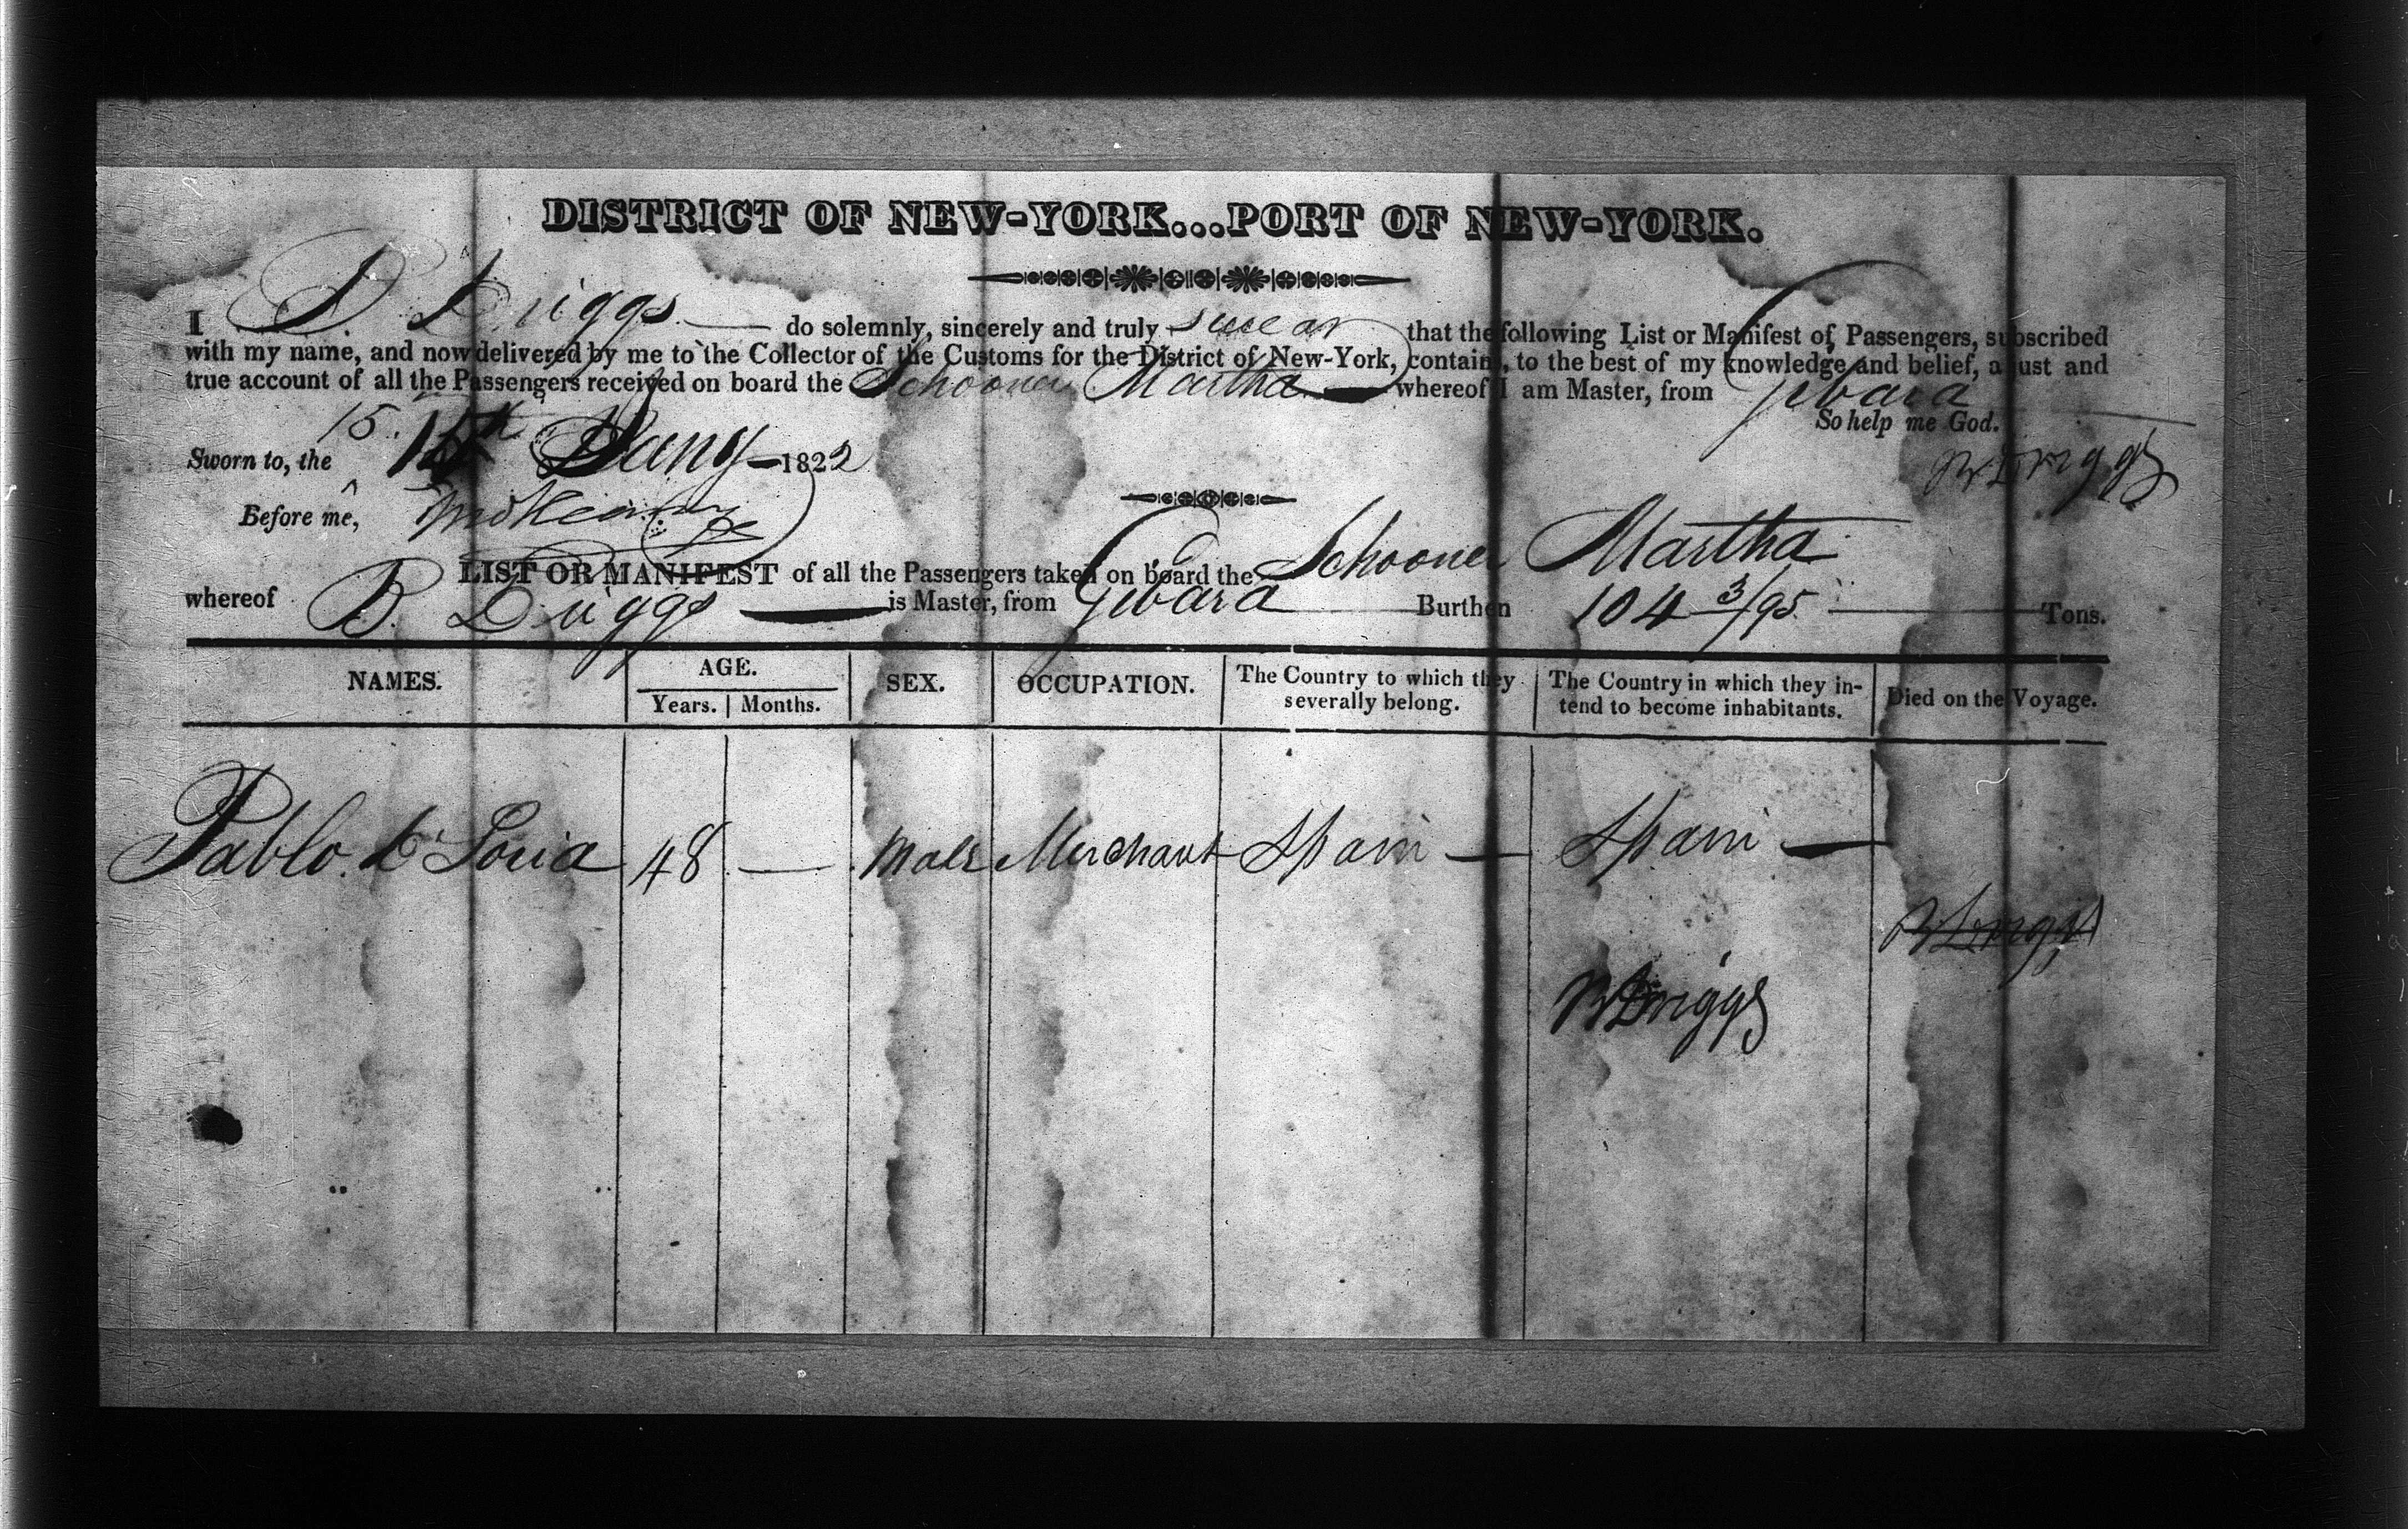 DISTRICT OF NEW-YORK...PORT OF NEW-YORK.
I B. Driggs do solemnly, sincerely and truly swear that the following List or Manifest of Passengers, subscribed
with my name, and now delivered by me to the Collector of the Customs for the District of New-York, contains, to the best of my knowledge and belief, a just and
true account of all the Passengers received on board the Schooner Martha whereof I am Master, from Gibara
So help me God.
15.
Sworn to, the Jany 1822
B Driggs
Before me,
LIST OR MANIFEST of all the Passengers taken on board the Schooner Martha
whereof B. Driggs is Master, from Gibara Burthen 104 3/95 Tons.
NAMES. AGE. Years. Months. SEX. OCCUPATION. The Country to which they severally belong. The Country in which they intend to become inhabitants. Died on the Voyage.
Pablo. D' Soria 48 Male Merchant Spain Spain
B Driggs
B Driggs